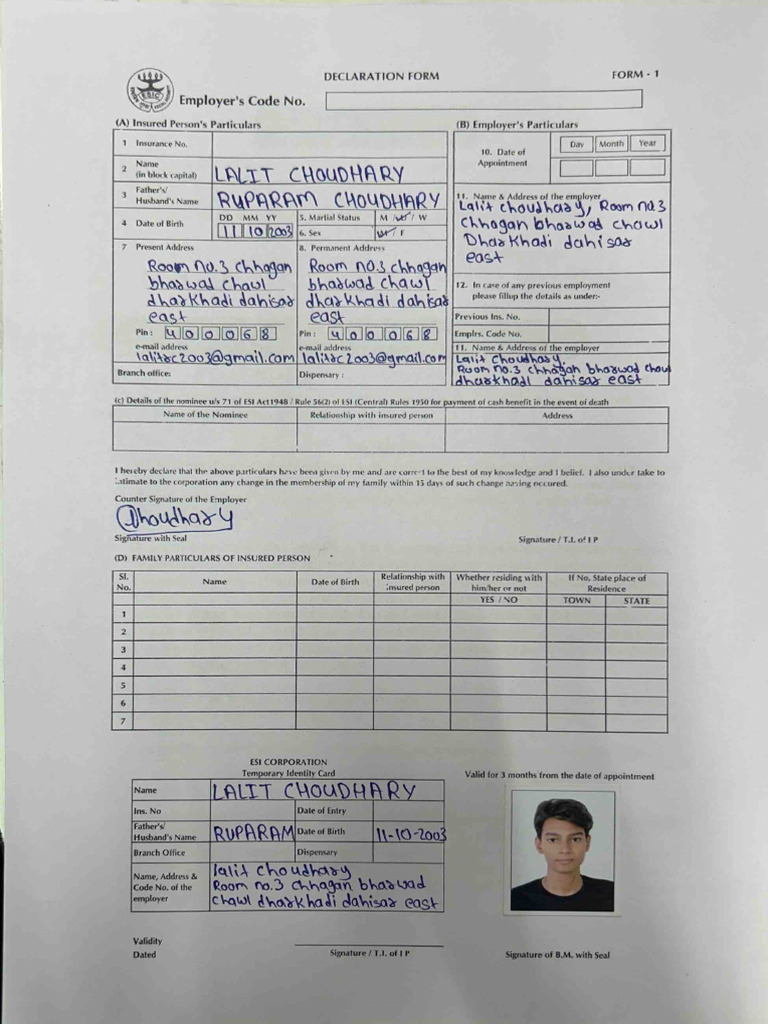 DECLARATION FORM
FORM - 1
ESIC
Employer's Code No.
(A) Insured Person's Particulars
(B) Employer's Particulars
1 Insurance No.
2 Name (in block capital) LALIT CHOUDHARY
3 Father's/ Husband's Name RUPARAM CHOUDHARY
4 Date of Birth DD MM YY 11 10 2003
5. Martial Status M / U / W
6. Sex M / F
10. Date of Appointment Day Month Year
11. Name & Address of the employer
Lalit choudhary, Room no.3
Chhagan bharwad chawl
Dharkhadi dahisar
east
7 Present Address
Room no.3 chhagan
bharwad chawl
dharkhadi dahisar
east
Pin : 400068
e-mail address
lalitrc2003@gmail.com
Branch office:
8. Permanent Address
Room no.3 chhagan
bharwad chawl
dharkhadi dahisar
east
Pin : 400068
e-mail address
lalitrc2003@gmail.com
Dispensary :
12. In case of any previous employment
please fillup the details as under:-
Previous Ins. No.
Emplrs. Code No.
11. Name & Address of the employer
Lalit Choudhary
Room no.3 chhagan bharwad chawl
dharkhadi dahisar east
(c) Details of the nominee u/s 71 of ESI Act1948 / Rule 56(2) of ESI (Central) Rules 1950 for payment of cash benefit in the event of death
Name of the Nominee Relationship with insured person Address
I hereby declare that the above particulars have been given by me and are correct to the best of my knowledge and I belief. I also under take to
intimate to the corporation any change in the membership of my family within 15 days of such change having occured.
Counter Signature of the Employer
Choudhary
Signature with Seal
Signature / T.I. of I P
(D) FAMILY PARTICULARS OF INSURED PERSON
Sl. No. Name Date of Birth Relationship with insured person Whether residing with him/her or not If No, State place of Residence
YES / NO TOWN STATE
1
2
3
4
5
6
7
ESI CORPORATION
Temporary Identity Card
Valid for 3 months from the date of appointment
Name LALIT CHOUDHARY
Ins. No Date of Entry
Father's/ Husband's Name RUPARAM Date of Birth 11-10-2003
Branch Office Dispensary
Name, Address & Code No. of the employer
lalit choudhary
Room no.3 chhagan bharwad
chawl dharkhadi dahisar east
Validity
Dated
Signature / T.I. of I P
Signature of B.M. with Seal